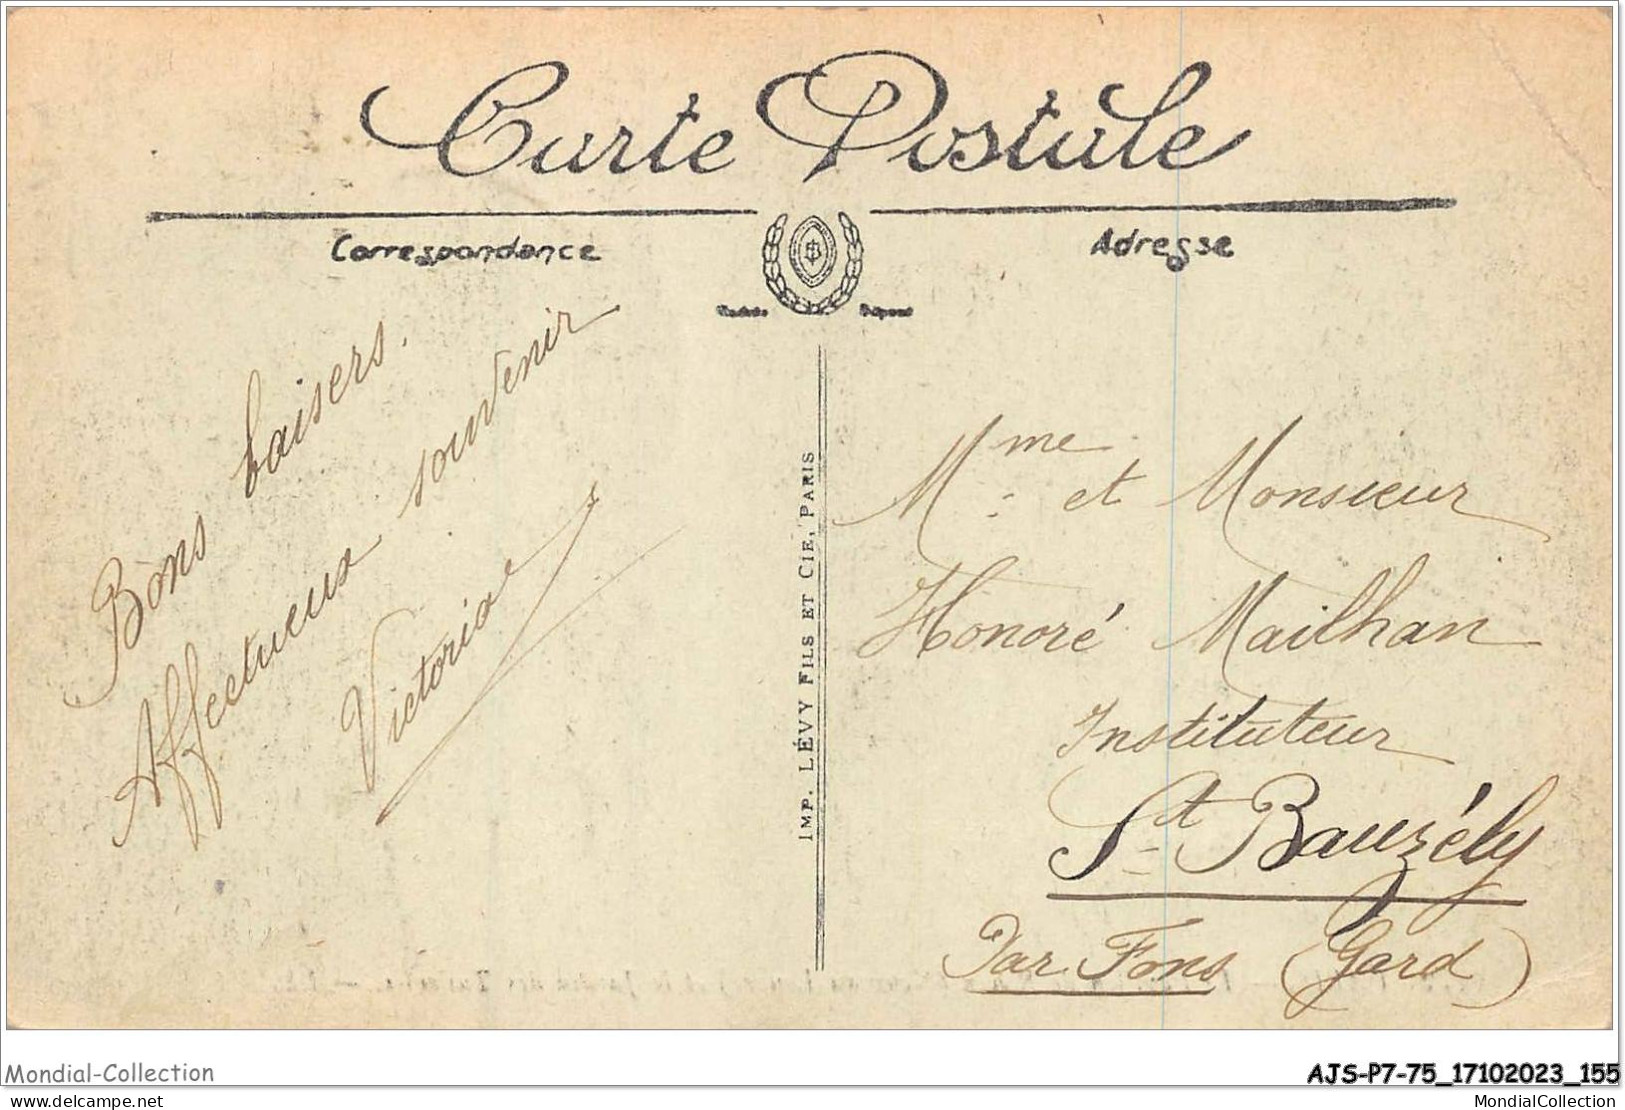 Carte Postale
Correspondance
Adresse
Bons baisers.
Affectueux souvenir
Victoria
IMP. LÉVY FILS ET CIE, PARIS
Mme et Monsieur
Honoré Mailhan
Instituteur
St Bauzély
Par Fons (Gard)
Mondial-Collection
AJS-P7-75_17102023_155
delcampe.net
MondialCollection